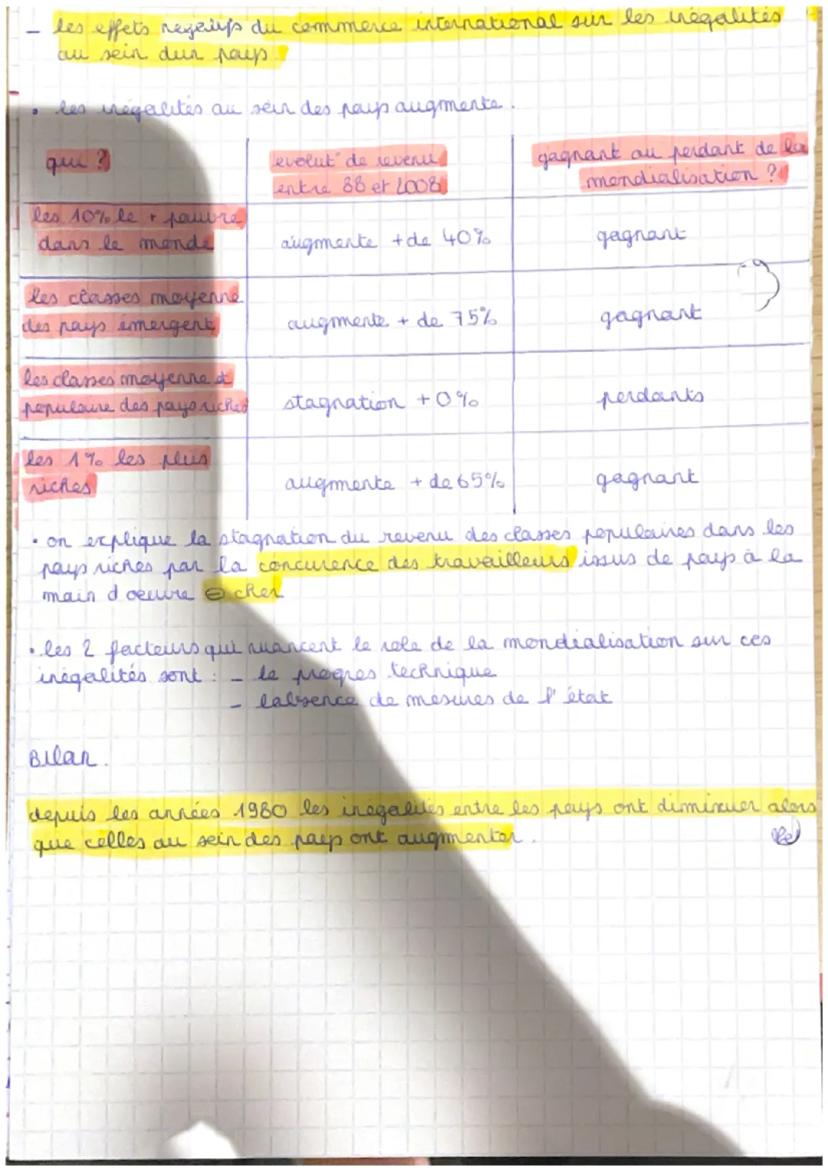 - les effets négatifs du commerce international sur les inégalités
au sein d'un pays
• les inégalités au sein des pays augmente.
qui ?
evolut° de revenu
entre 88 et 2008
gagnant ou perdant de la
mondialisation ?
les 10% le + pauvre
dans le monde
augmente + de 40%
gagnant
les classes moyenne
des pays émergent
augmente + de 75%
gagnant
les classes moyenne et
populaire des pays riches
stagnation + 0%
perdants
les 1% les plus
riches
augmente + de 65%
gagnant
• on explique la stagnation du revenu des classes populaires dans les
pays riches par la concurence des travailleurs issus de pays à la
main d'oeuvre ⊖ cher
• les 2 facteurs qui nuancent le role de la mondialisation sur ces
inégalités sont : - le progres technique
- l'absence de mesures de l'état
Bilan.
depuis les années 1980 les inégalités entre les pays ont diminuer alors
que celles au sein des pays ont augmenter.